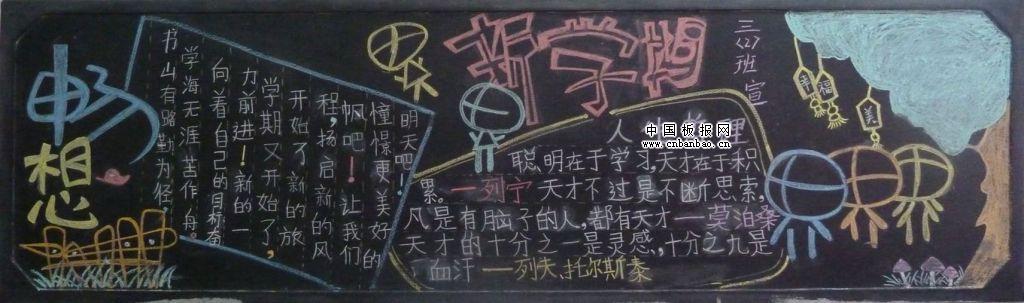 畅想
新学期
三(2)班 宣
书山有路勤为径
学海无涯苦作舟。
向着自己的目标奋
力前进!新的一
学期又开始了,
开始了新的旅
程,扬启新的风
帆吧!让我们
憧憬更美好的
明天吧!
人 里
聪明在于学习,天才在于积
累。—列宁 天才不过是不断思索,
凡是有脑子的人,都有天才—莫泊桑
天才的十分之一是灵感,十分之九是
血汗—列夫.托尔斯泰
幸福
美
中国板报网
www.cnbanbao.cn